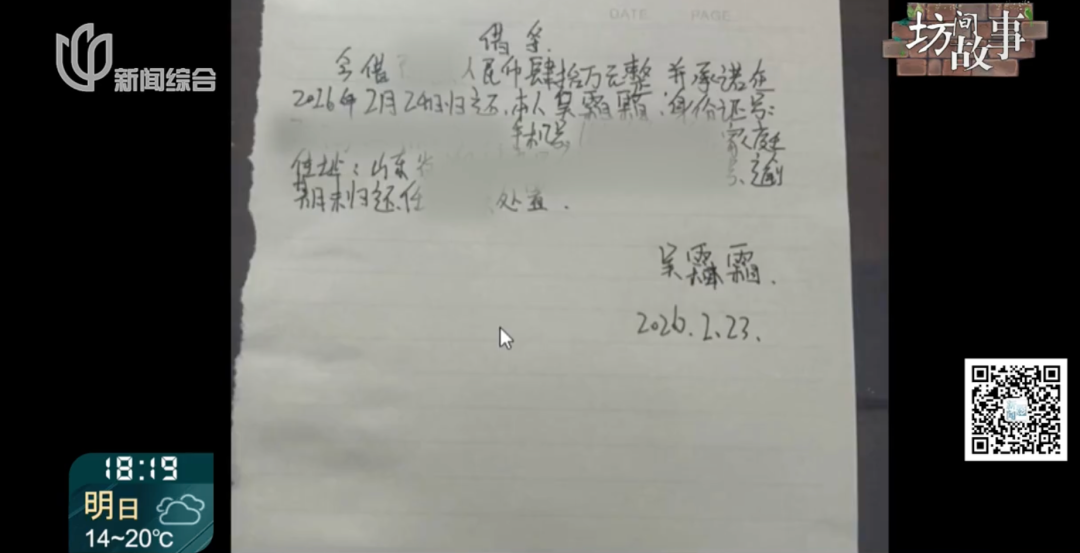 DATE PAGE
坊间故事
新闻综合
借条.
今借 人民币肆拾万元整 并承诺在
2026年2月24日归还.本人吴霜霜.身份证号:
手机号 家庭
住址:山东省 号.逾
期未归还.任 处置.
吴霖霜.
2026.2.23.
18:19
明日
14~20℃